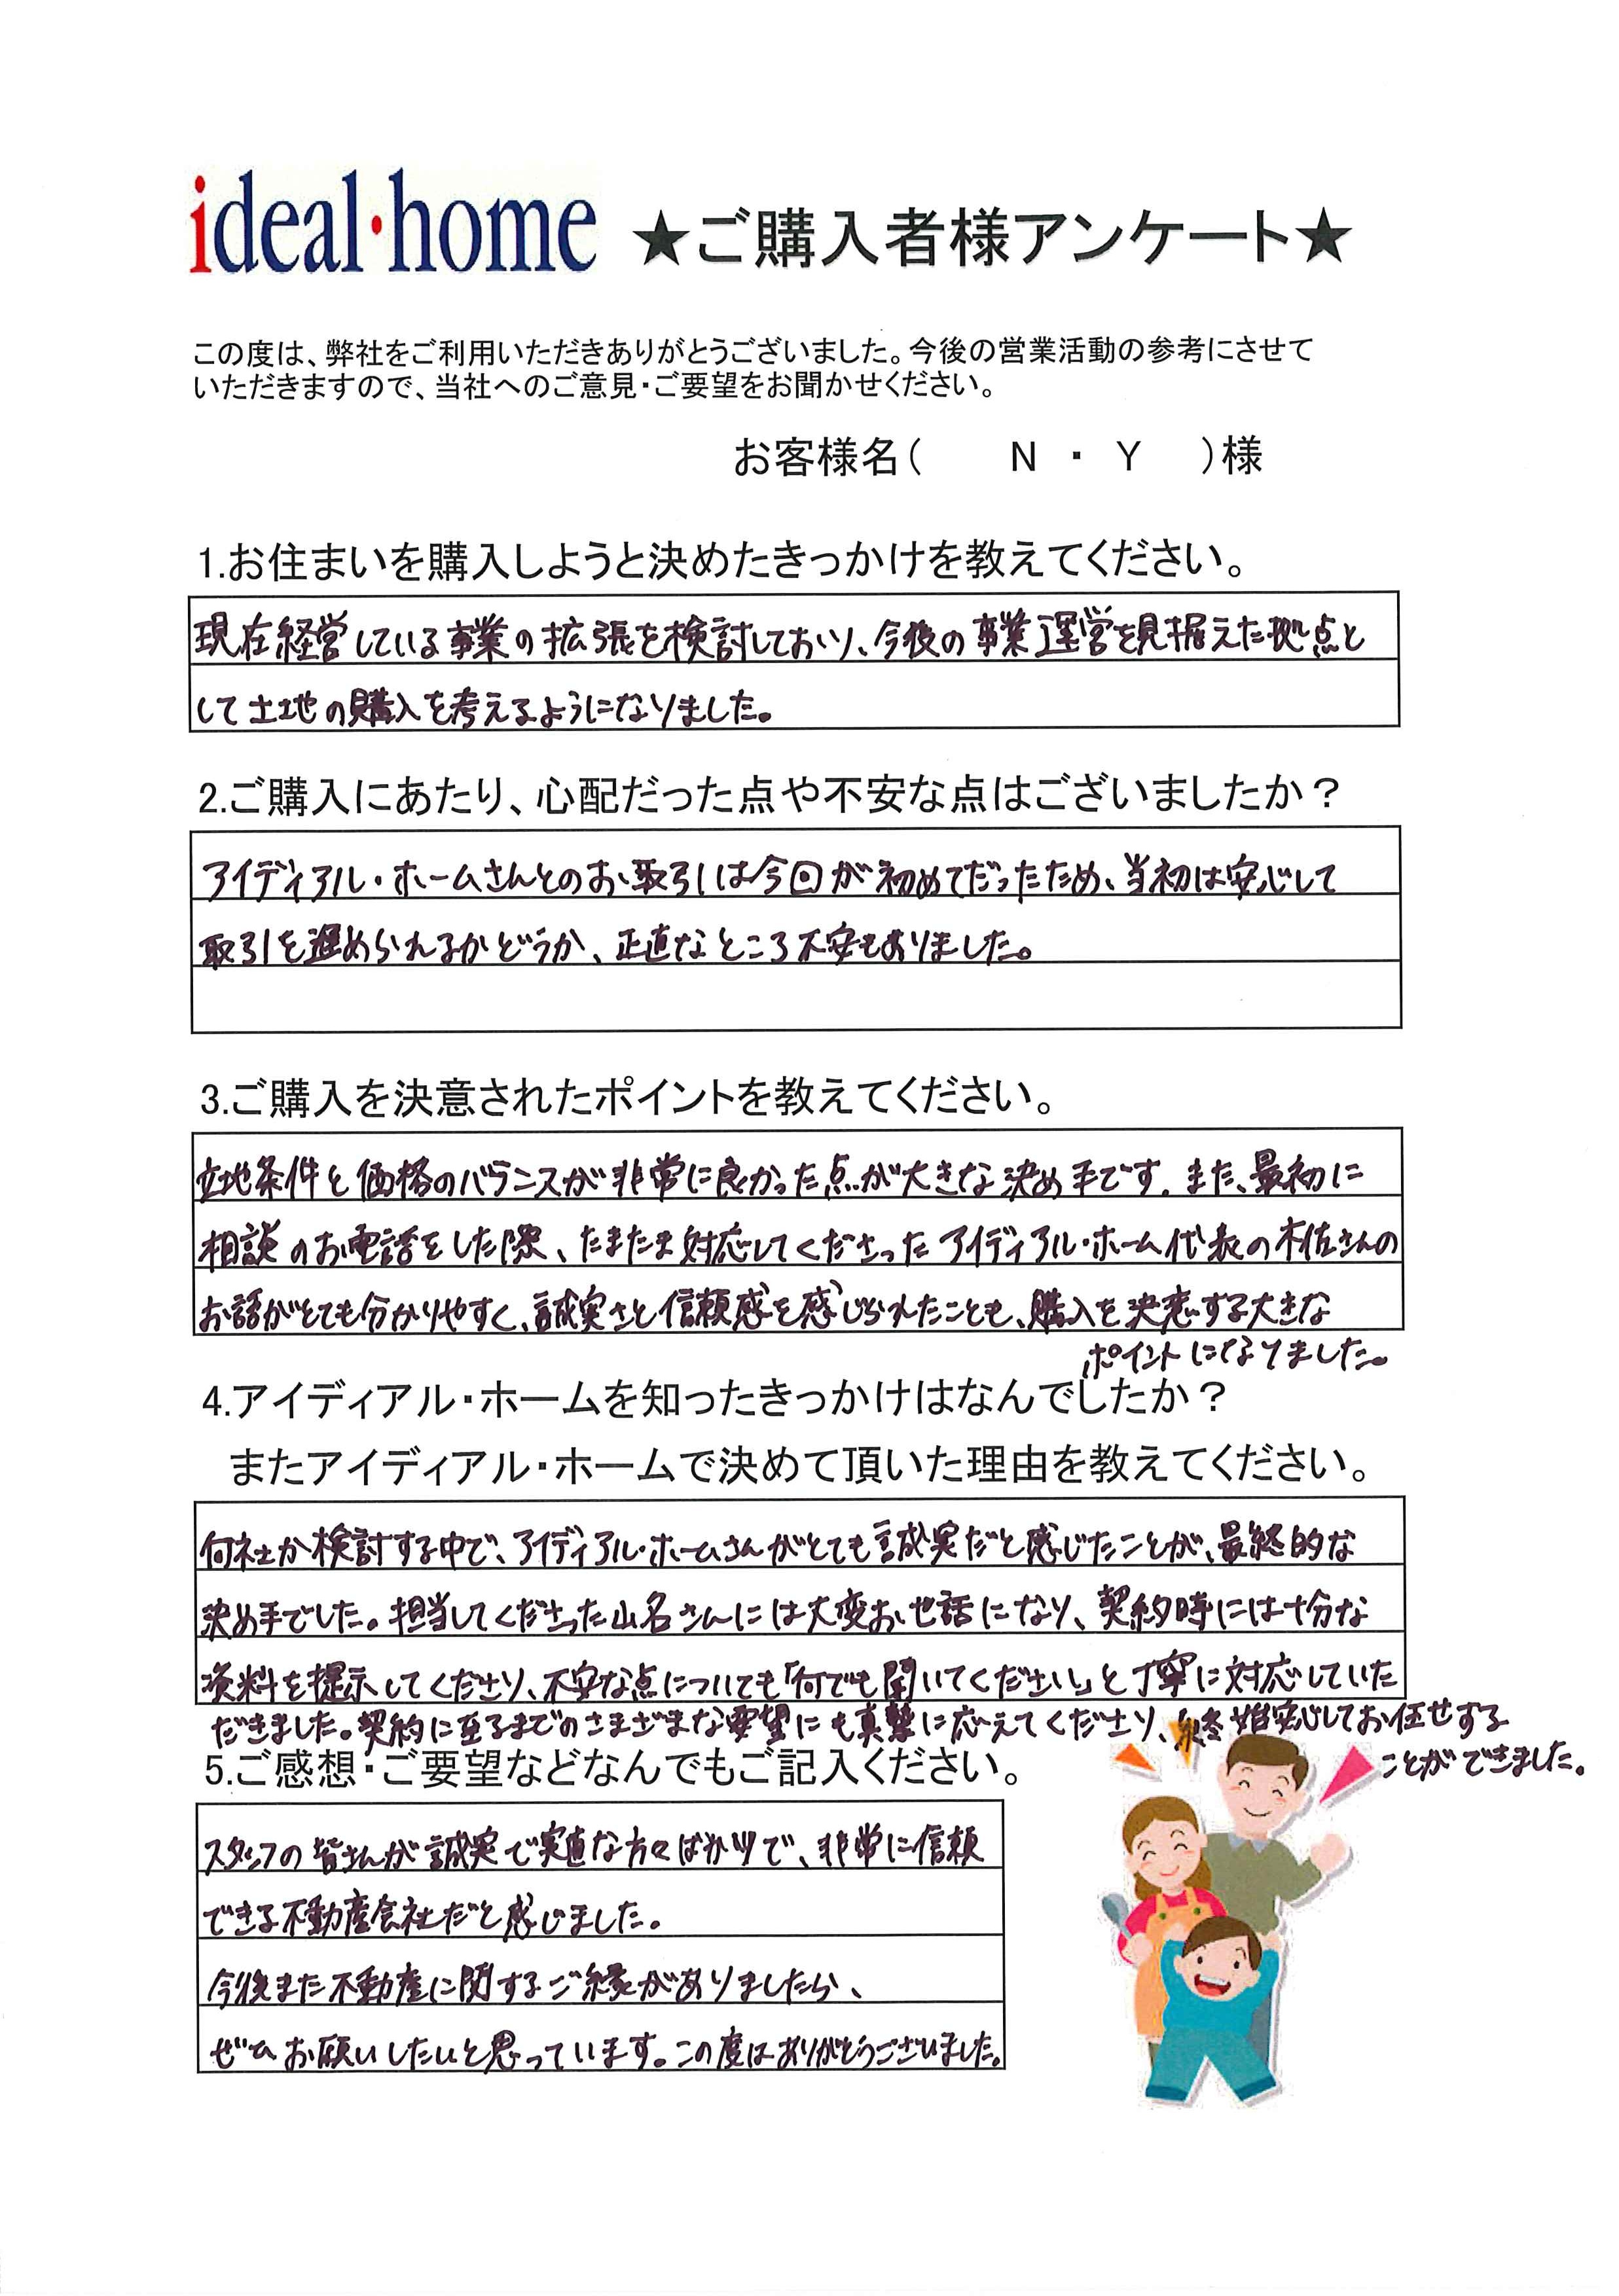 ideal・home ★ご購入者様アンケート★
この度は、弊社をご利用いただきありがとうございました。今後の営業活動の参考にさせて
いただきますので、当社へのご意見・ご要望をお聞かせください。
お客様名( N ・ Y )様
1.お住まいを購入しようと決めたきっかけを教えてください。
現在経営している事業の拡張を検討しており、今後の事業運営を見据えた拠点と
して土地の購入を考えるようになりました。
2.ご購入にあたり、心配だった点や不安な点はございましたか？
アイディアル・ホームさんとのお取引は今回が初めてだったため、当初は安心して
取引を進められるかどうか、正直なところ不安もありました。
3.ご購入を決意されたポイントを教えてください。
立地条件と価格のバランスが非常に良かった点が大きな決め手です。また、最初に
相談のお電話をした際、たまたま対応してくださったアイディアル・ホーム代表の木佐さんの
お話がとても分かりやすく、誠実さと信頼感を感じられたことも、購入を決意する大きな
ポイントになりました。
4.アイディアル・ホームを知ったきっかけはなんでしたか？
またアイディアル・ホームで決めて頂いた理由を教えてください。
何社か検討する中で、アイディアル・ホームさんがとても誠実だと感じたことが、最終的な
決め手でした。担当してくださった山名さんには大変お世話になり、契約時には十分な
資料を提示してくださり、不安な点についても「何でも聞いてください」と丁寧に対応していた
だきました。契約に至るまでのさまざまな要望にも真摯に応えてくださり、終始安心してお任せする
ことができました。
5.ご感想・ご要望などなんでもご記入ください。
スタッフの皆さんが誠実で実直な方々ばかりで、非常に信頼
できる不動産会社だと感じました。
今後また不動産に関するご縁がありましたら、
ぜひお願いしたいと思っています。この度はありがとうございました。